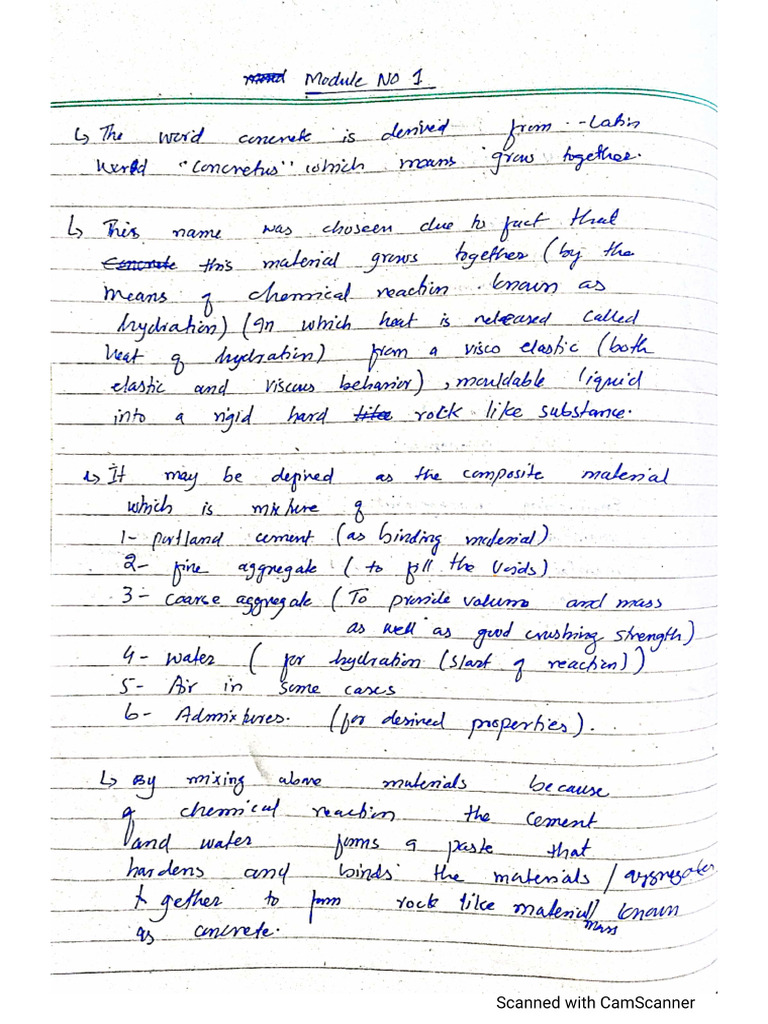 Module No 1
↳ The word concrete is derived from Latin
word "concretus" which means grow together.
↳ This name was choseen due to fact that
this material grows together (by the
means of chemical reaction known as
hydration) (In which heat is released called
heat of hydration) from a visco elastic (both
elastic and viscous behavior), mouldable liquid
into a rigid hard rock like substance.
↳ It may be defined as the composite material
which is mixture of
1- portland cement (as binding material)
2- fine aggregate (to fill the voids)
3- coarse aggregate (To provide volume and mass
as well as good crushing strength)
4- water (for hydration (start of reaction))
5- Air in some cases
6- Admixtures. (for desired properties).
↳ By mixing above materials because
of chemical reaction the cement
and water forms a paste that
hardens and binds the materials / aggregates
together to form rock like material/ known
mass
as concrete.
Scanned with CamScanner